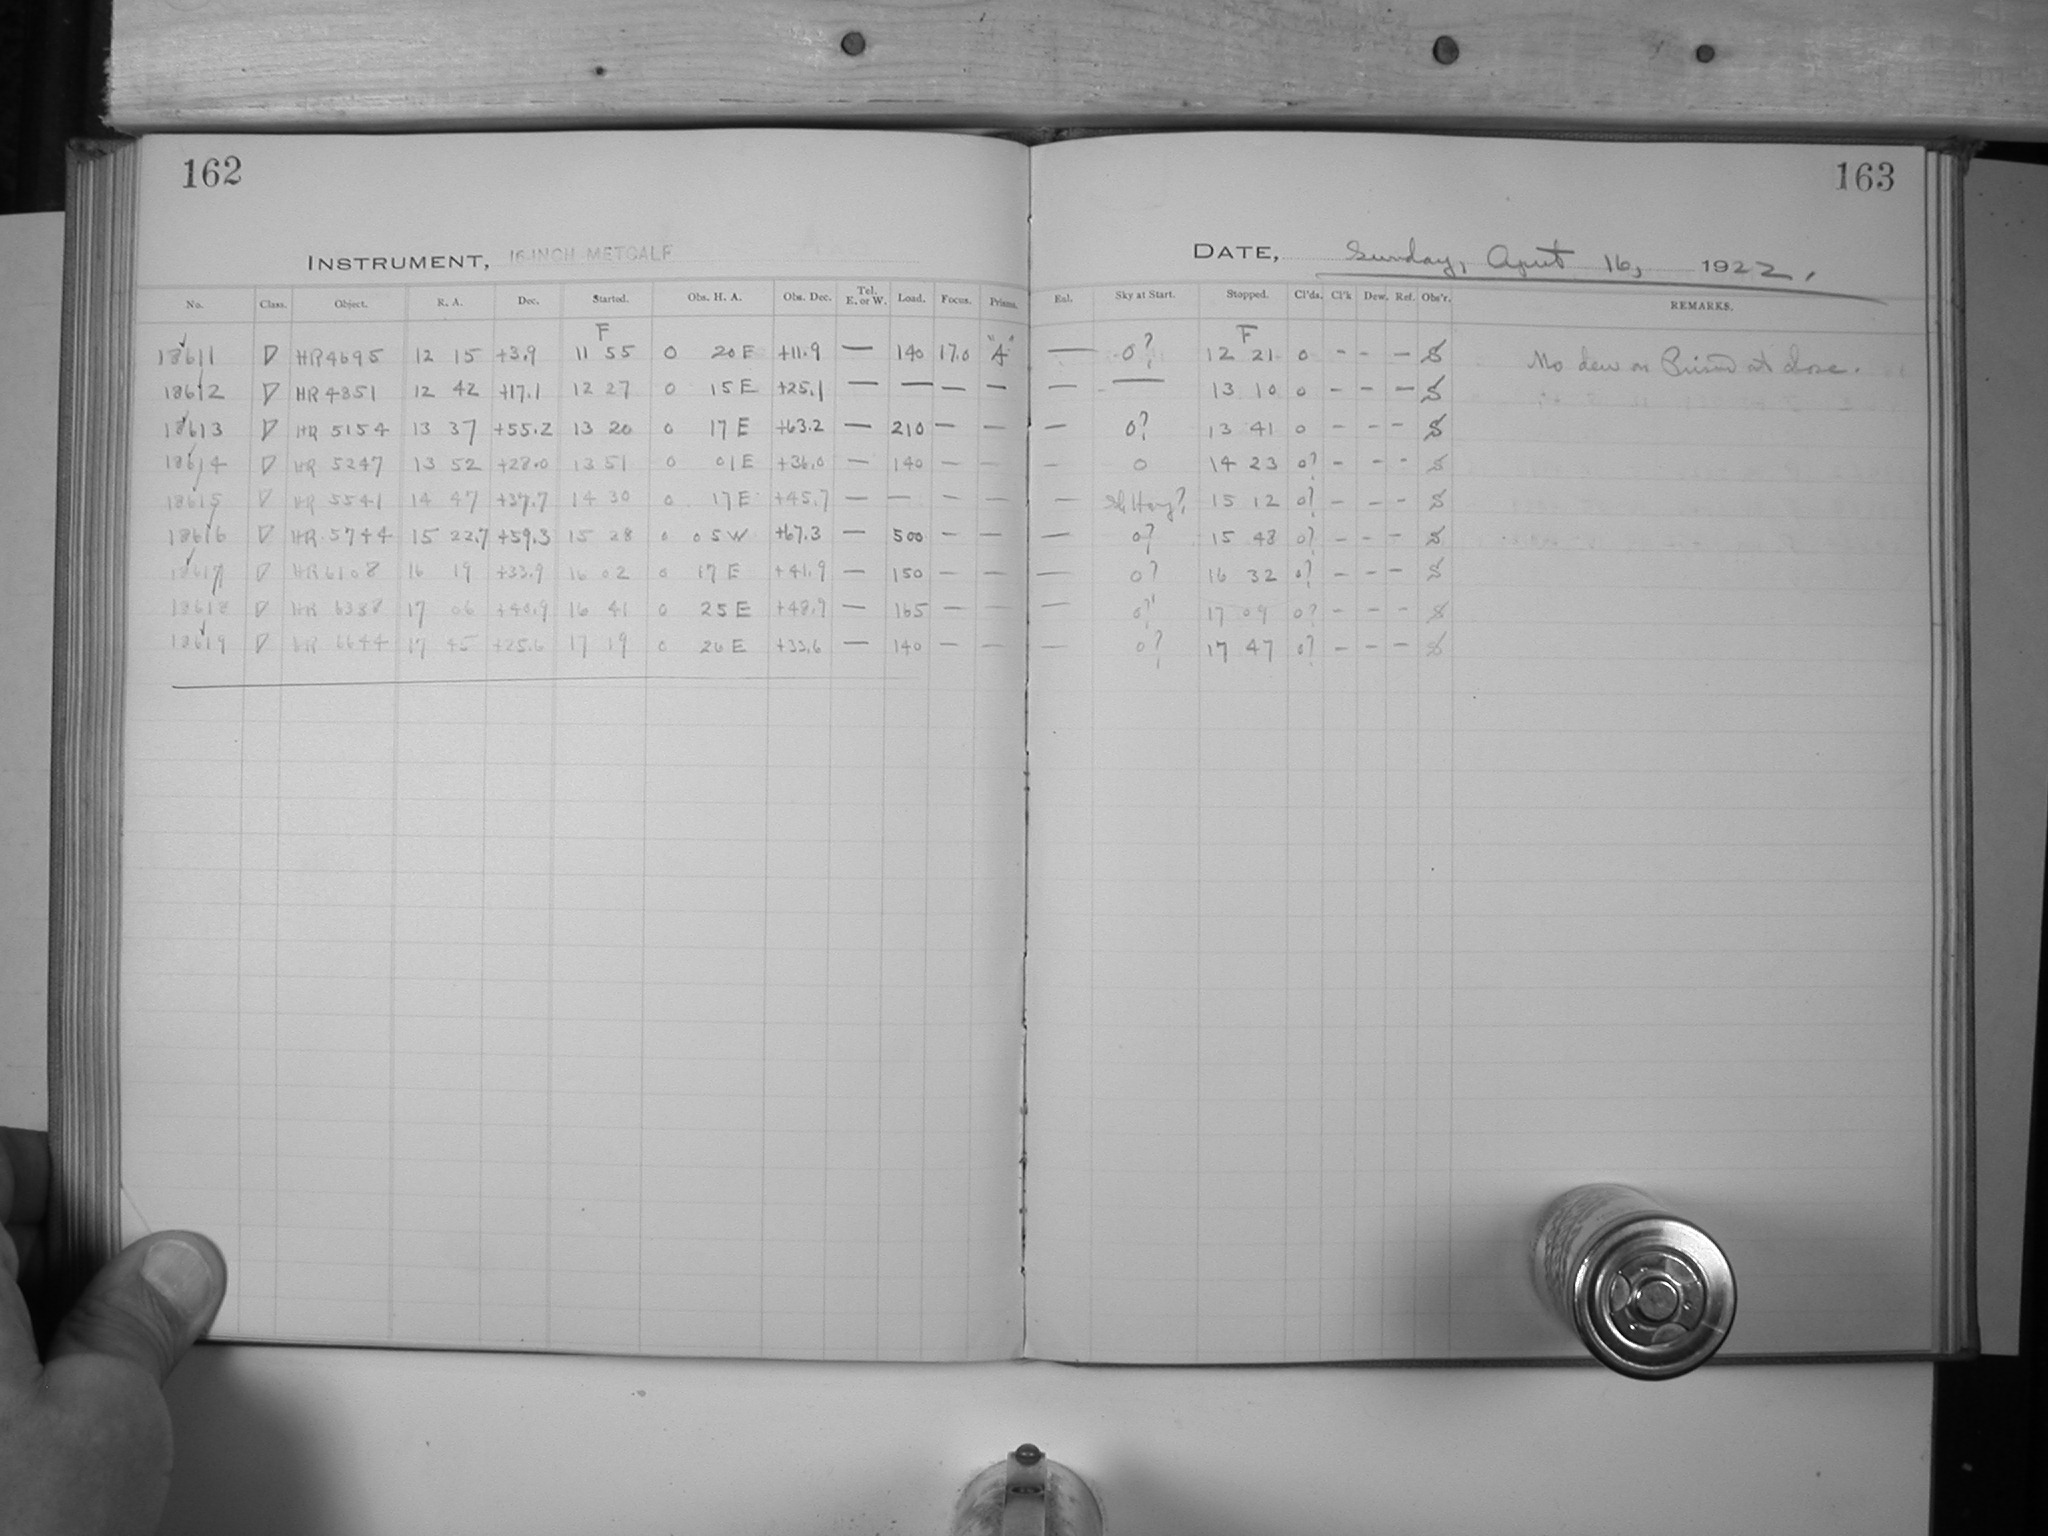 162
163
INSTRUMENT, 16-INCH METCALF
DATE, Sunday, April 16, 1922.
No. Class. Object. R. A. Dec. Started. Obs. H. A. Obs. Dec. Tel. E. or W. Load. Focus. Prisms. Eal. Sky at Start. Stopped. Cl'ds. Cl'k Dew. Ref. Obs'r. REMARKS.
F F
18611 D HR 4695 12 15 +3.9 11 55 0 20 E +11.9 — 140 17.0 "A" — 0? 12 21 0 - - - S No dew on Prism at close.
18612 D HR 4851 12 42 +17.1 12 27 0 15 E +25.1 — — — — — — 13 10 0 - - - S
18613 D HR 5154 13 37 +55.2 13 20 0 17 E +63.2 — 210 — — — 0? 13 41 0 - - - S
18614 D HR 5247 13 52 +28.0 13 51 0 01 E +36.0 — 140 — — — 0 14 23 0? - - - S
18615 D HR 5541 14 47 +37.7 14 30 0 17 E +45.7 — — — — — Sl. Hazy? 15 12 0? - - - S
18616 D HR 5744 15 22.7 +59.3 15 28 0 05 W +67.3 — 500 — — — 0? 15 48 0? - - - S
18617 D HR 6108 16 19 +33.9 16 02 0 17 E +41.9 — 150 — — — 0? 16 32 0? - - - S
18618 D HR 6388 17 06 +40.9 16 41 0 25 E +48.9 — 165 — — — 0? 17 09 0? - - - S
18619 D HR 6644 17 45 +25.6 17 19 0 26 E +33.6 — 140 — — — 0? 17 47 0? - - - S